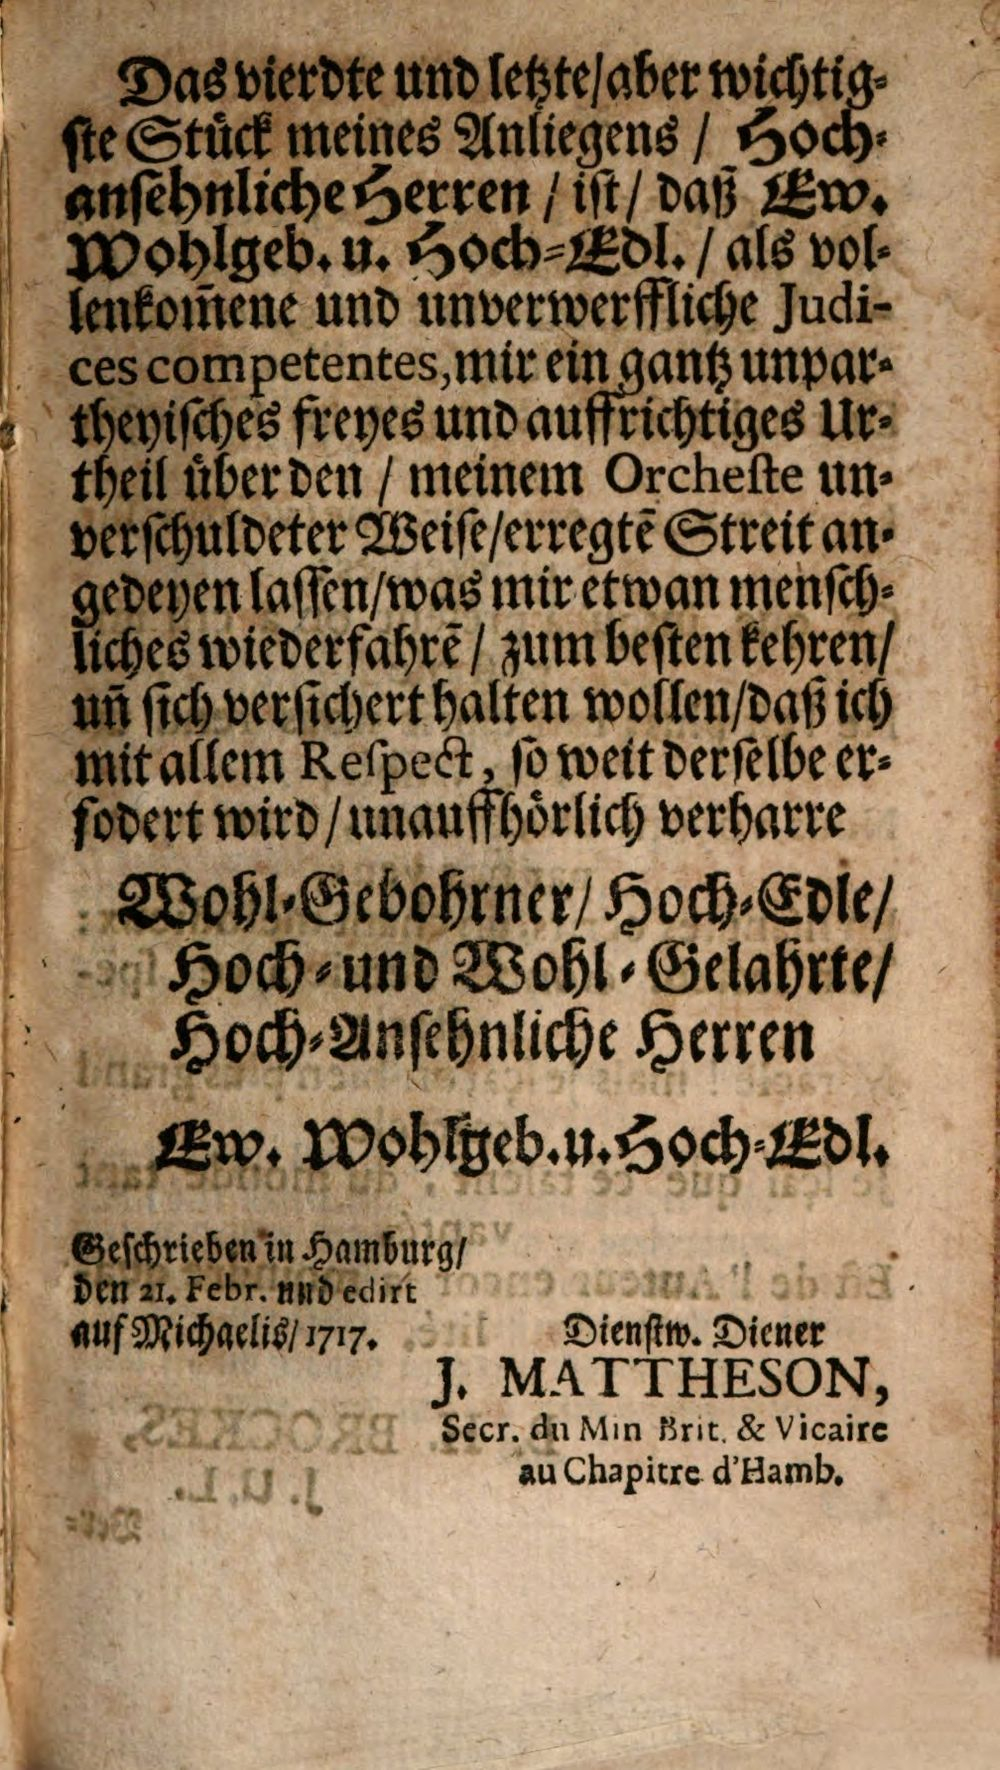 Das vierdte und letzte/aber wichtig-
ste Stück meines Anliegens / Hoch-
ansehnliche Herren / ist/ daß Ew.
Wohlgeb. u. Hoch-Edl. / als vol-
lenkom̄ene und unverwerffliche Judi-
ces competentes, mir ein gantz unpar-
theyisches freyes und auffrichtiges Ur-
theil über den / meinem Orcheste un-
verschuldeter Weise/erregtē Streit an-
gedeyen lassen/was mir etwan mensch-
liches wiederfahrē / zum besten kehren/
un̄ sich versichert halten wollen/daß ich
mit allem Respect, so weit derselbe er-
fodert wird/unauffhörlich verharre
Wohl-Gebohrner/ Hoch-Edle/
Hoch- und Wohl-Gelahrte/
Hoch-Ansehnliche Herren
Ew. Wohlgeb. u. Hoch-Edl.
Geschrieben in Hamburg/
den 21. Febr. und edirt
auf Michaelis/ 1717.
Dienstw. Diener
J. MATTHESON,
Secr. du Min Brit. & Vicaire
au Chapitre d'Hamb.